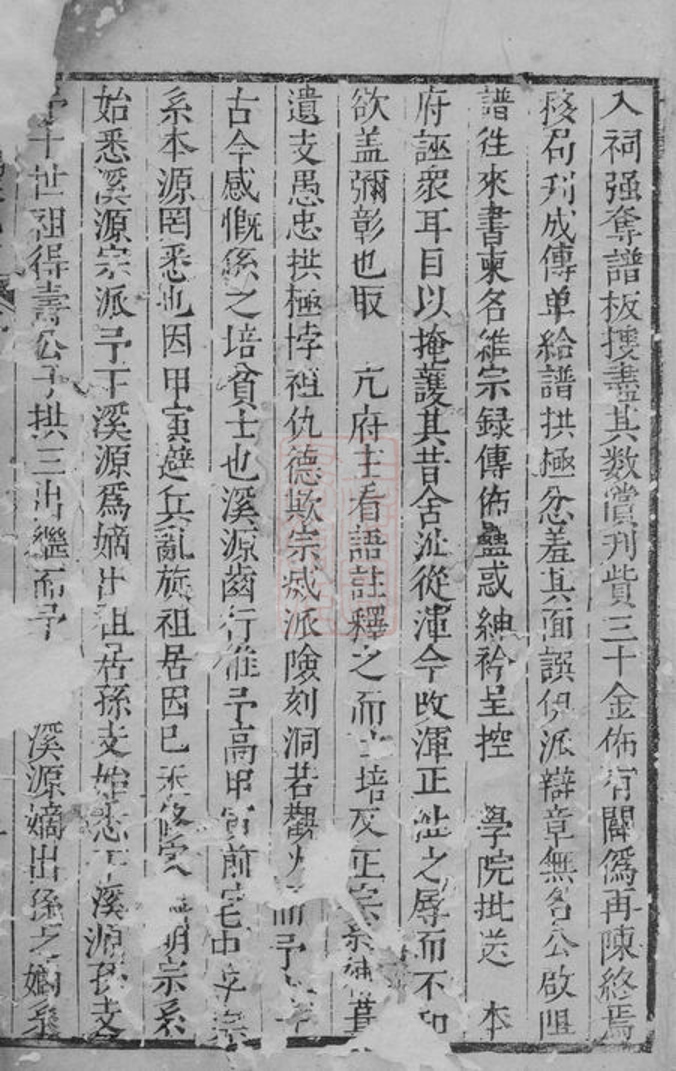 入祠强奪譜板搜盡其数償刋貲三十金佈有關爲再陳終焉
核局刋成傳单給譜拱極忿羞其面誤伊派辯章無名公啟阻
譜徃來書柬名維宗録傳佈蠱惑紳衿呈控　學院批送　本
府誣衆耳目以掩護其昔舍沚從渾今改渾正沚之辱而不知
欲盖彌彰也取　亢府主看語註釋之而培反正宗
遺支愚忠拱極悖祖仇德欺宗烕派險刻洞若觀火而予
古今感慨係之培貧士也溪源齒行維予高甲寅前宅中宗
系本源罔悉也因甲寅避兵亂旋祖居因已修明宗系
始悉溪源宗派予于溪源爲嫡出祖居孫支始悉于溪源孫支
予十世祖得壽公子拱三出繼而予　溪源嫡出孫之嫡系